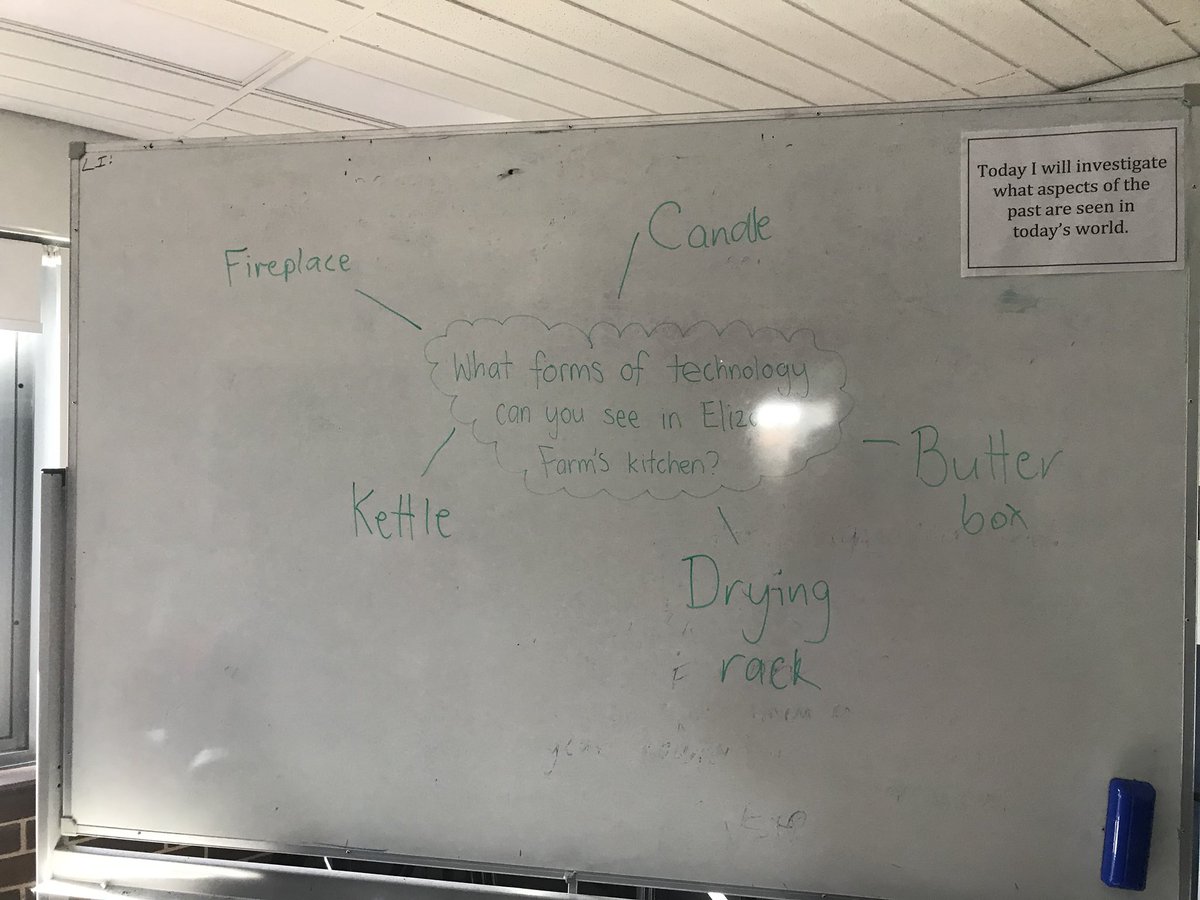 LI:
Today I will investigate
what aspects of the
past are seen in
today's world.
Candle
Fireplace
What forms of technology
can you see in
Farm's kitchen?
Butter
box
Kettle
Drying
rack